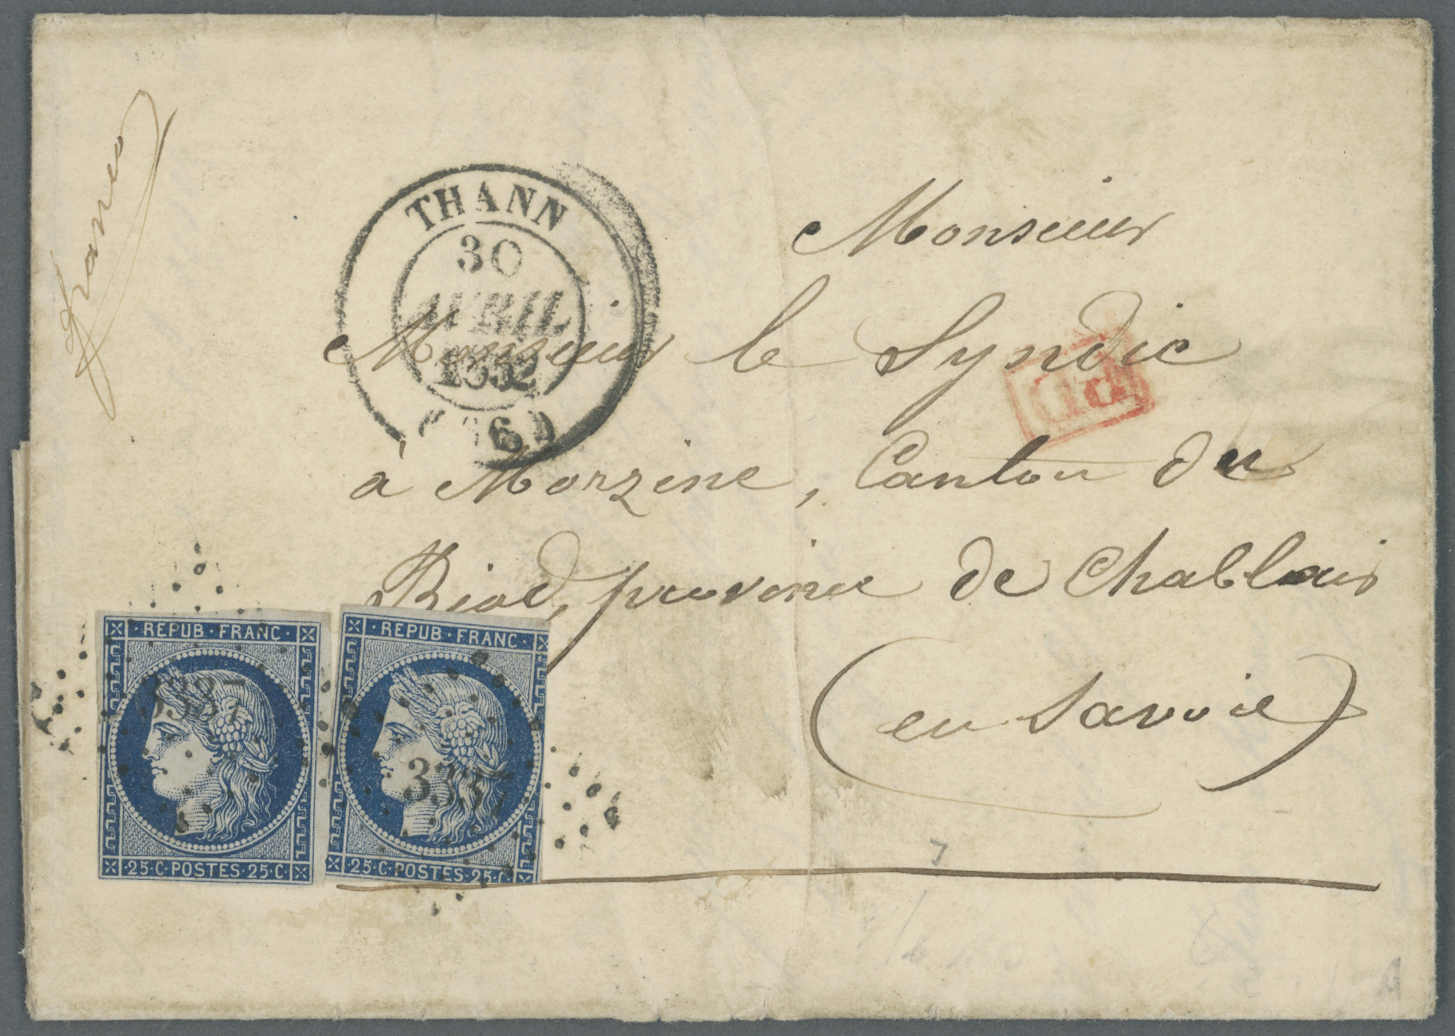 franco
THANN
30
AVRIL
1852
(66)
Monsieur
Monsieur le Syndic
PD
à Morzine, Canton du
Biod, province de Chablais
(en Savoie)
REPUB · FRANC ·
REPUB · FRANC ·
3337
3337
· 25 · C · POSTES · 25 · C ·
· 25 · C · POSTES · 25 · C ·
7